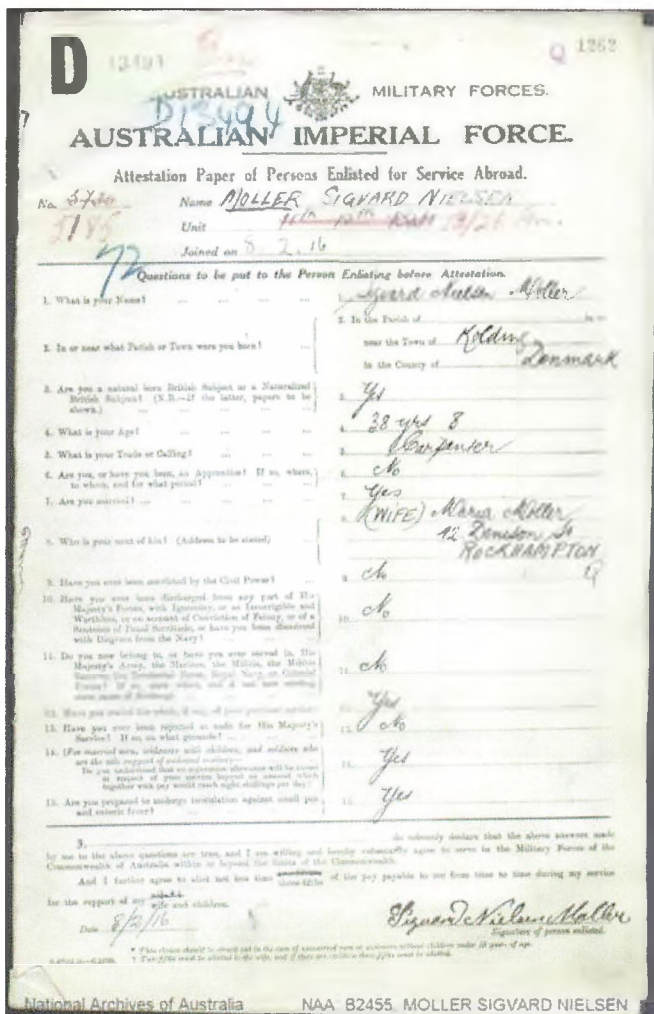 D 13494 Q 1262
AUSTRALIAN MILITARY FORCES.
D13494
AUSTRALIAN IMPERIAL FORCE.
Attestation Paper of Persons Enlisted for Service Abroad.
No. Name MOLLER SIGVARD NIELSEN
5185 Unit
Joined on 8.2.16
72
Questions to be put to the Person Enlisting before Attestation.
1. What is your Name? ... 1. Sigvard Nielsen Moller
2. In or near what Parish or Town were you born? ... 2. In the Parish of in or
near the Town of Kolding
in the County of Denmark
3. Are you a natural born British Subject or a Naturalized
British Subject? (N.B.—If the latter, papers to be
shown.) ... 3. Yes
4. What is your Age? ... 4. 38 yrs 8
5. What is your Trade or Calling? ... 5. Carpenter
6. Are you, or have you been, an Apprentice? If so, where,
to whom, and for what period? 6. No
7. Are you married? ... 7. Yes
8. Who is your next of kin? (Address to be stated) 8. (WIFE) Maria Moller
42 Denison St
ROCKHAMPTON
Q
9. Have you ever been convicted by the Civil Power? ... 9. No
10. Have you ever been discharged from any part of His
Majesty's Forces, with Ignominy, or as Incorrigible and
Worthless, or on account of Conviction of Felony, or of a
Sentence of Penal Servitude, or have you been dismissed
with Disgrace from the Navy? 10. No
11. Do you now belong to, or have you ever served in, His
Majesty's Army, the Marines, the Militia, the Militia
11. No
12. Have you stated the whole, if any, of your previous service? Yes
13. Have you ever been rejected as unfit for His Majesty's
Service? If so, on what grounds? 13. No
14. (For married men, widowers with children, and soldiers who
are the sole support of widowed mother)—
Do you understand that no separation allowance will be issued
in respect of your service beyond an amount which
together with pay would reach eight shillings per day? 14. Yes
15. Are you prepared to undergo inoculation against small pox
and enteric fever? 15. Yes
do solemnly declare that the above answers made
by me to the above questions are true, and I am willing and hereby voluntarily agree to serve in the Military Forces of the
Commonwealth of Australia within or beyond the limits of the Commonwealth.
And I further agree to allot not less than three-fifths of the pay payable to me from time to time during my service
for the support of my wife and children.
Date 8/2/16 Sigvard Nielsen Moller
Signature of person enlisted.
* This clause should be struck out in the case of unmarried men or widowers without children under 18 years of age.
† Two-fifths must be allotted to the wife, and if there are children three-fifths must be allotted.
National Archives of Australia NAA: B2455, MOLLER SIGVARD NIELSEN